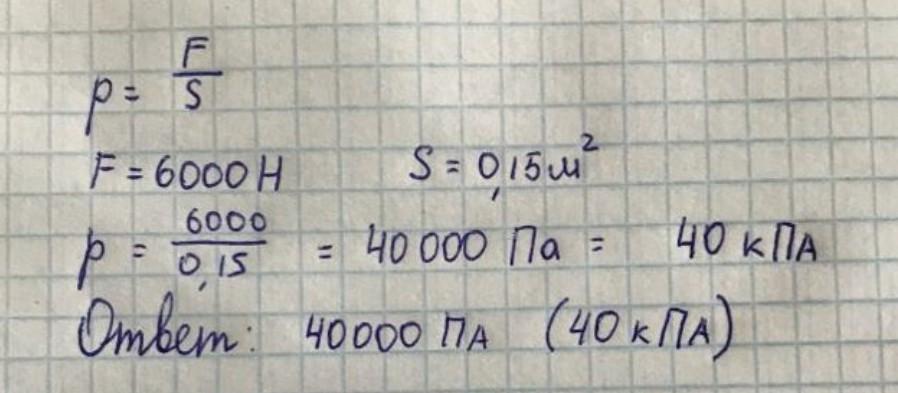 p = F/S
F = 6000 Н S = 0,15 м²
p = 6000/0,15 = 40 000 Па = 40 кПА
Ответ: 40000 ПА (40 кПА)